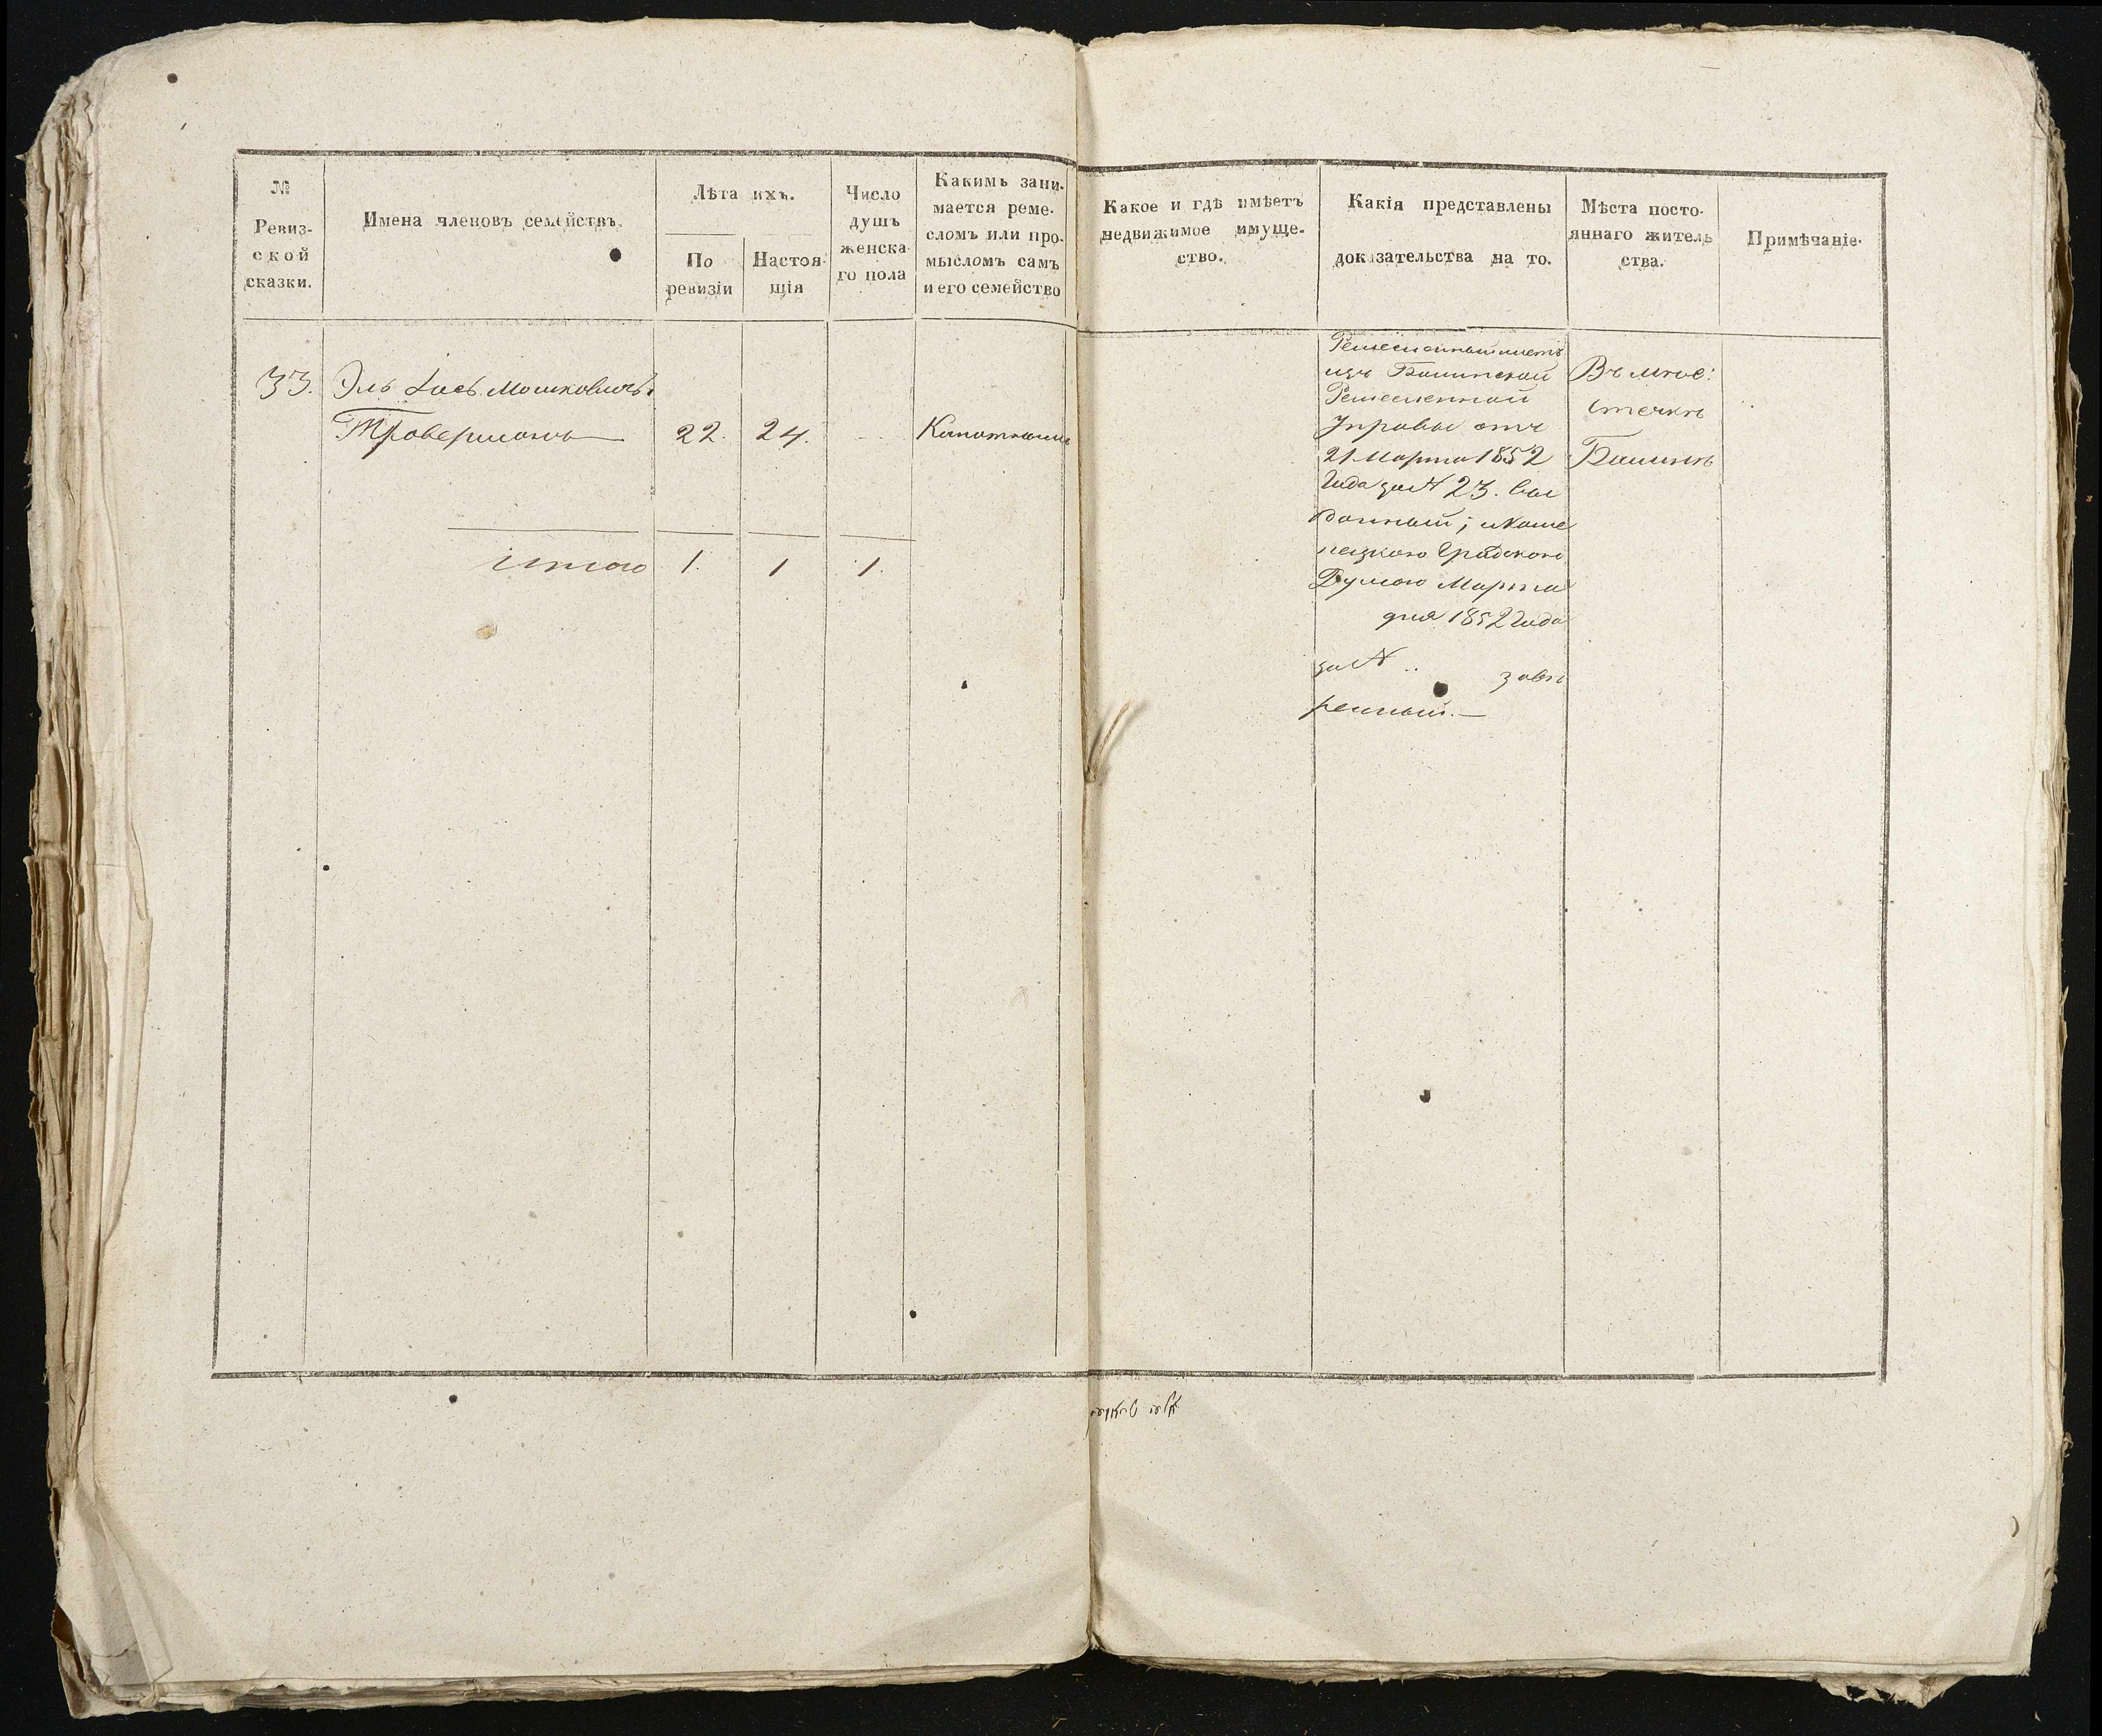 №
Ревиз-
ской
сказки.
Имена членовъ семействъ.
Лѣта ихъ.
По
ревизіи
Настоя-
щія
Число
душъ
женска-
го пола
Какимъ зани-
мается реме-
сломъ или про-
мысломъ самъ
и его семейство
Какое и гдѣ имѣетъ
недвижимое имуще-
ство.
Какія представлены
доказательства на то.
Мѣста посто-
яннаго житель
ства.
Примѣчаніе.
33. Эль Мошковичъ
22. 24.
Итого 1. 1 1.
Ремесленный листъ
изъ
Ремесленной
Управы отъ
21 Марта 1852
Года за № 23. вы
данный; и Каме
нецкою Градскою
Думою Марта
дня 1852 Года
за № завѣ
ренный.—
Въ мѣс:
течкѣ